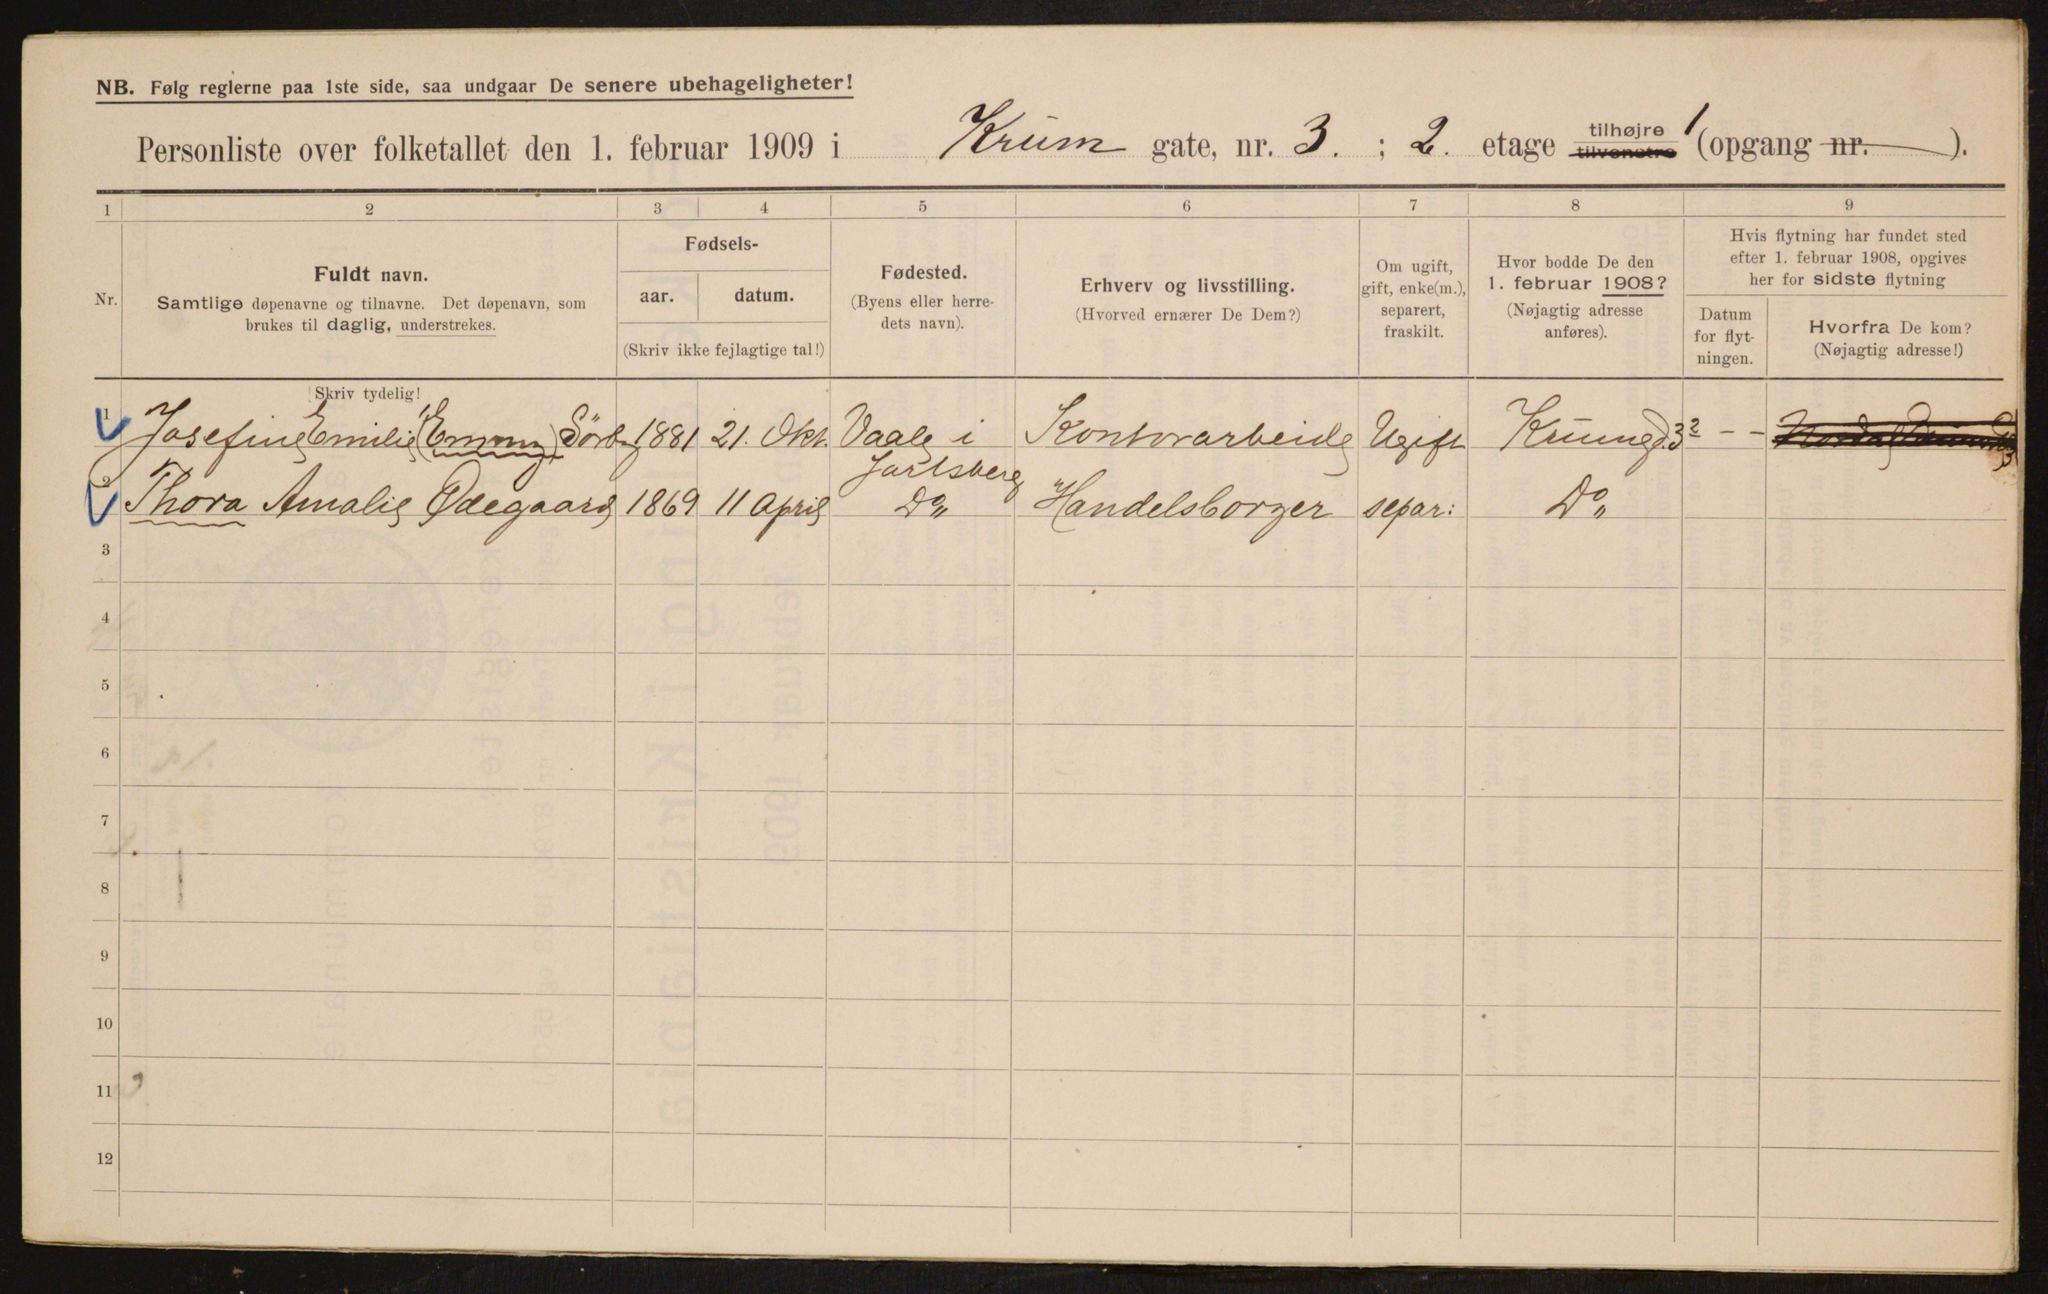 NB. Følg reglerne paa 1ste side, saa undgaar De senere ubehageligheter!
Personliste over folketallet den 1. februar 1909 i Krum gate, nr. 3. ; 2. etage tilhøjre tilvenstre 1 (opgang nr. ).
1 2 3 4 5 6 7 8 9
Nr.
Fuldt navn.
Samtlige døpenavne og tilnavne. Det døpenavn, som
brukes til daglig, understrekes.
Fødsels-
aar. datum.
(Skriv ikke fejlagtige tal!)
Fødested.
(Byens eller herre-
dets navn).
Erhverv og livsstilling.
(Hvorved ernærer De Dem?)
Om ugift,
gift, enke(m.),
separert,
fraskilt.
Hvor bodde De den
1. februar 1908?
(Nøjagtig adresse
anføres).
Hvis flytning har fundet sted
efter 1. februar 1908, opgives
her for sidste flytning
Datum
for flyt-
ningen.
Hvorfra De kom?
(Nøjagtig adresse!)
Skriv tydelig!
1 Josefine Emilie (Emmy) Sörby 1881 21. Okt. Vaale i Jarlsberg Kontorarbeide Ugift Krumgd. 3 2 - -
2 Thora Amalie Ødegaard 1869 11 April Do Handelsborger separ: Do
3
4
5
6
7
8
9
10
11
12